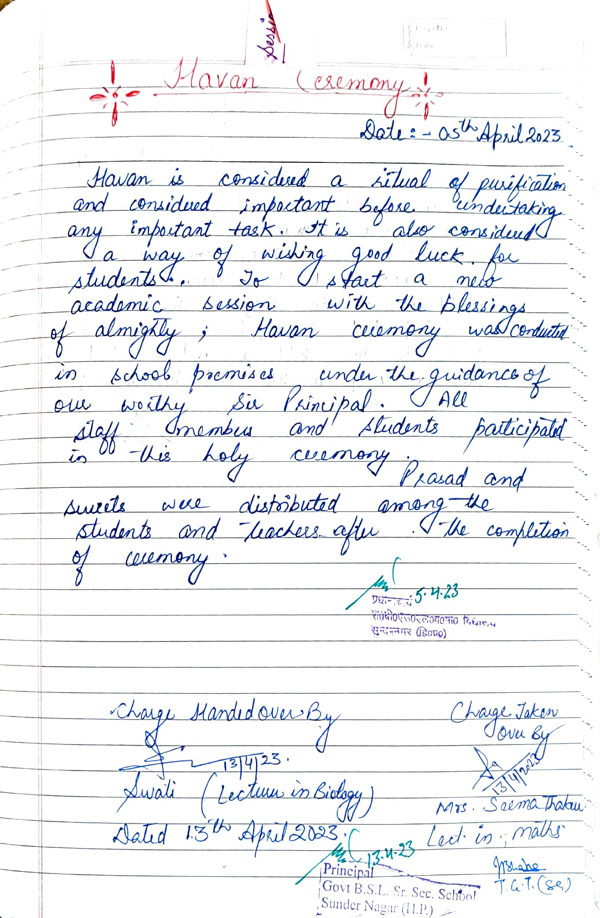 Session
Havan Ceremony
Date:- 05th April 2023
Havan is considered a ritual of purification
and considered important before undertaking
any important task. It is also considered
a way of wishing good luck for
students. To start a new
academic session with the blessings
of almighty; Havan ceremony was conducted
in school premises under the guidance of
our worthy Sir Principal. All
staff members and students participated
in this holy ceremony.
Prasad and
sweets were distributed among the
students and teachers after the completion
of ceremony.
5.4.23
सुन्दरनगर (हि०प्र०)
Charge Handed Over By
13/4/23.
Swati (Lecturer in Biology)
Dated 13th April 2023.
Charge Taken
Over By
13/4/2023
Mrs. Seema Thakur
Lect. in, maths
13.4.23
Principal
Govt B.S.L. Sr. Sec. School
Sunder Nagar (H.P.)
T.G.T. (Sc.)